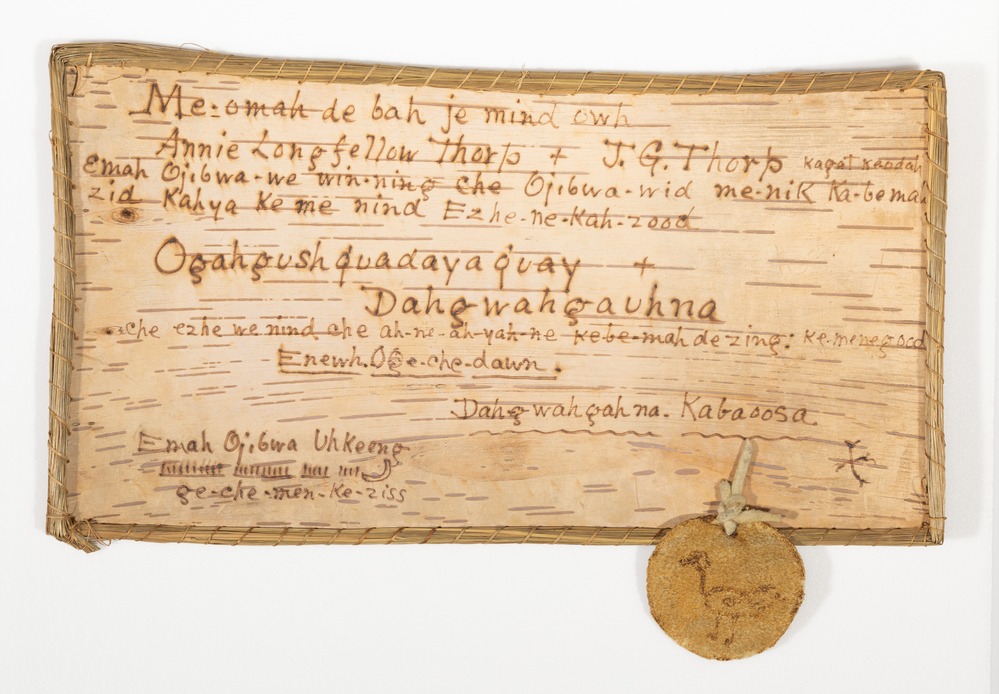 Me-omah de bah je mind owh
Annie Longfellow Thorp + J.G. Thorp kagat kaodah
Emah Ojibwa-we win-ning che Ojibwa-wid me-nik Ka-bemah
zid Kahya Ke me nind Ezhe-ne-Kah-zood
Ogahgushquadayaquay +
Dahgwahgauhna
che ezhe we nind che ah-ne-ah-yah-ne kebe-mah de zing: Ke-menegood
Enewh. Oge-che-dawn.
Dahgwahgahna. Kabaoosa
Emah Ojibwa Uhkeeng
ge-che-men-ke-ziss